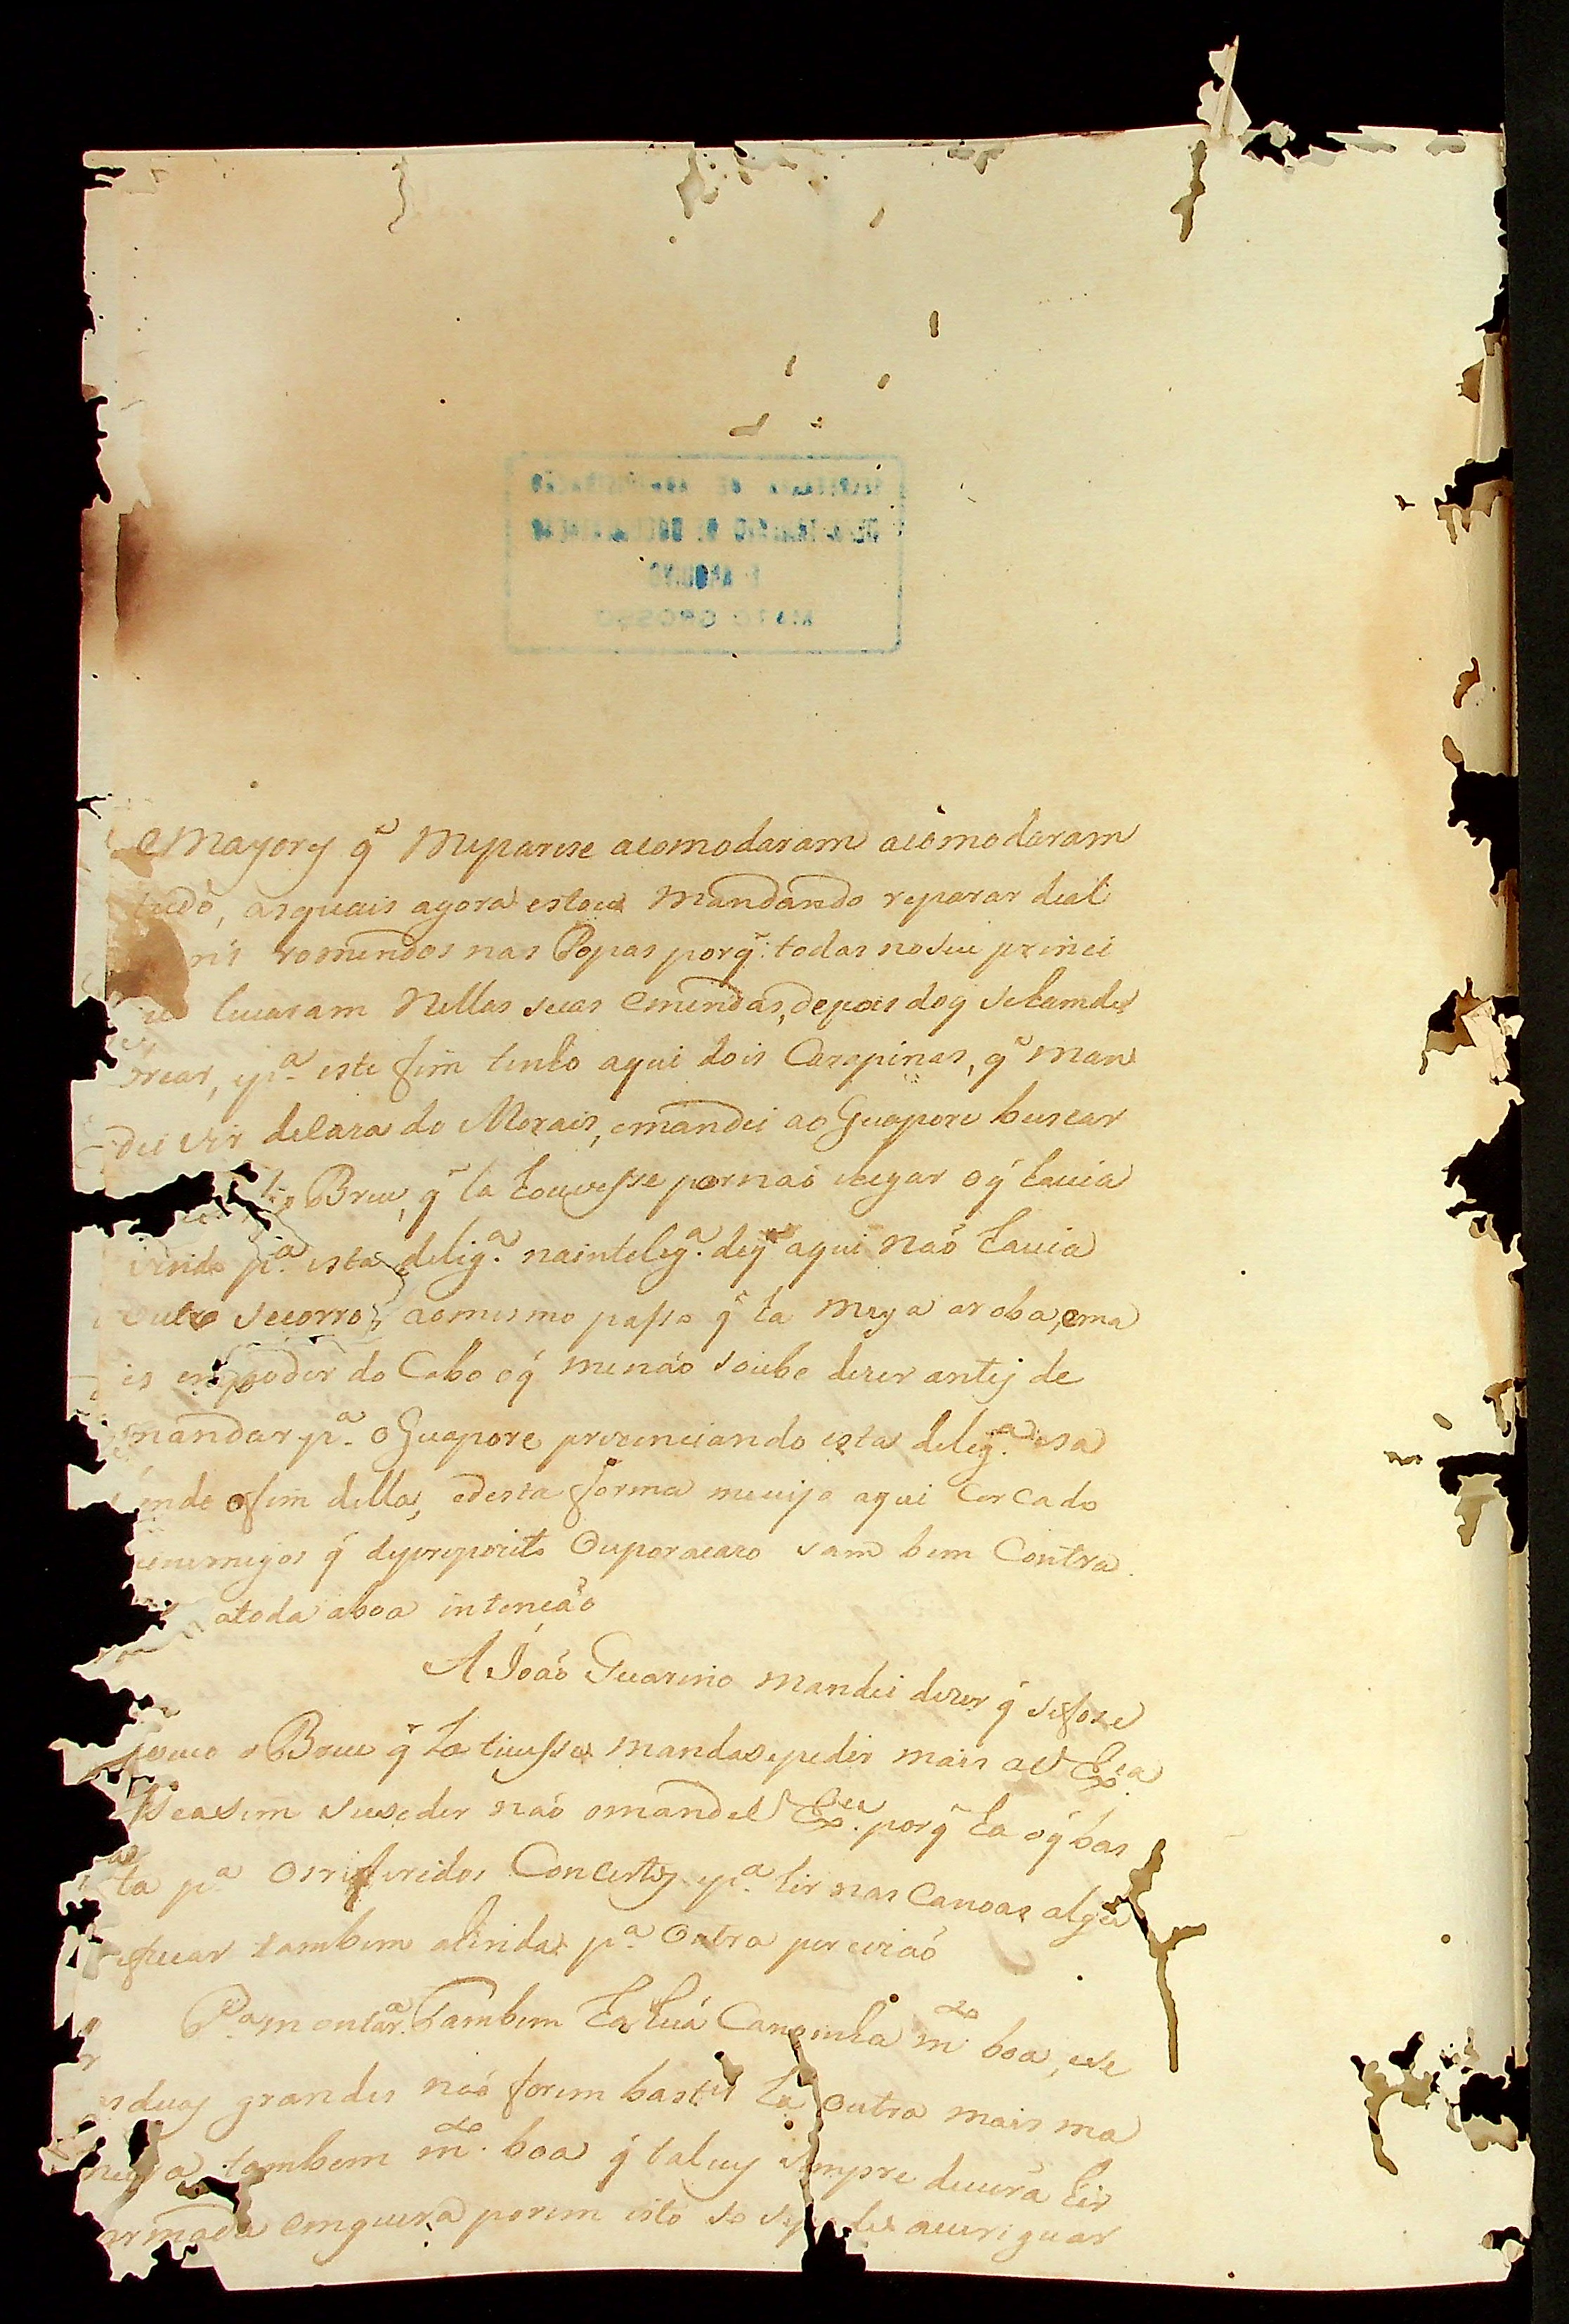 e Mayores q̃ Meparese acomodaram acomodaram
tudo, asquais agora estou Mandando reparar deal
romendos nas Popas porq̃: todas noseu princi
levaram Nellas suas Emendas, depois deq̃ seham de
brear, ep.ª este fim tenho aqui dois Carapinas, q̃ man
dei vir decaza do Morais, emandei ao Guapore buscar
Breu, q̃ la houvesse pornaó chegar oq̃ havia
vindo p.ª esta delig.ª naintelig.ª deq̃ aqui naó havia
outro secorro, aomesmo passo q̃ ha meya aroba, ema
is em poder do Cabo oq̃ menáo soube dizer antes de
mandar p.ª o Guapore prezenciando esta delig.ª esa
endo ofim della, edesta forma mevejo aqui Cercado
enemigos q̃ depreporito Ouporacazo sam bem Contra
atoda aboa intençaó
A Joáo Guarino mandei dizer q̃ sefose
pouco o Breu q̃ la tivesse mandasepedir mais aV Ex.cia
Seasim suseder naó omande V Ex.cia porq̃ ha oq̃ bas
ta p.ª Osrefiridos Concertos ep.ª hir nas Canoas algũ
eficar tambem ahinda p.ª Outra percizaó
P.ª montar.ª Tambem ha huá Canoinha m.to boa, ese
asduas grandes naó forem bast.es ha outra mais ma
neira tambem m.to boa q̃ talves sempre devera hir
armada emguerra porem isto so se pode averiguar